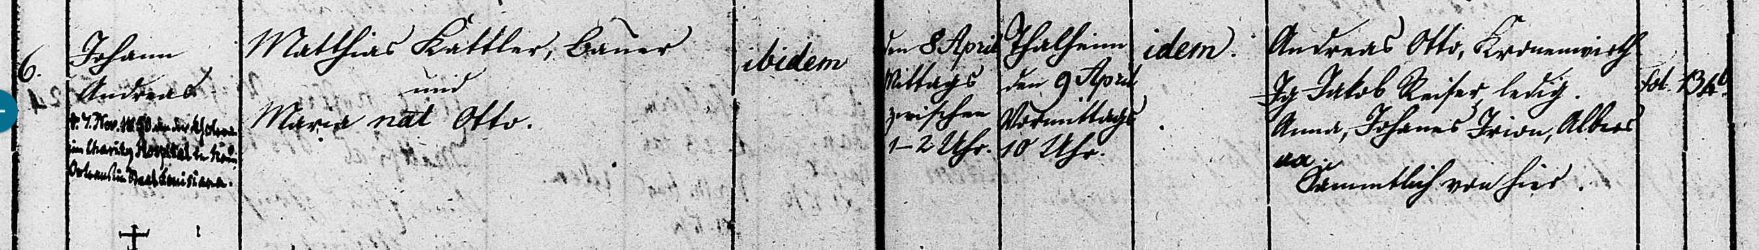 6.
Johann
Andreas
† 7. Nov. 1850 an der Cholera
im Charity Hospital in Neu
Orleans im Staat Louisiana.
Matthias Kattler, Bauer
und
Maria nat Otto.
ibidem
den 8 April
Mittags
zwischen
1-2 Uhr.
Thalheim
den 9 April
Vormittags
10 Uhr.
idem.
Andreas Otto, Kronenwirth
Jg Jakob Reiser, ledig.
Anna, Johanes Irion,
ux.
Sämmtlich von hier.
fol.